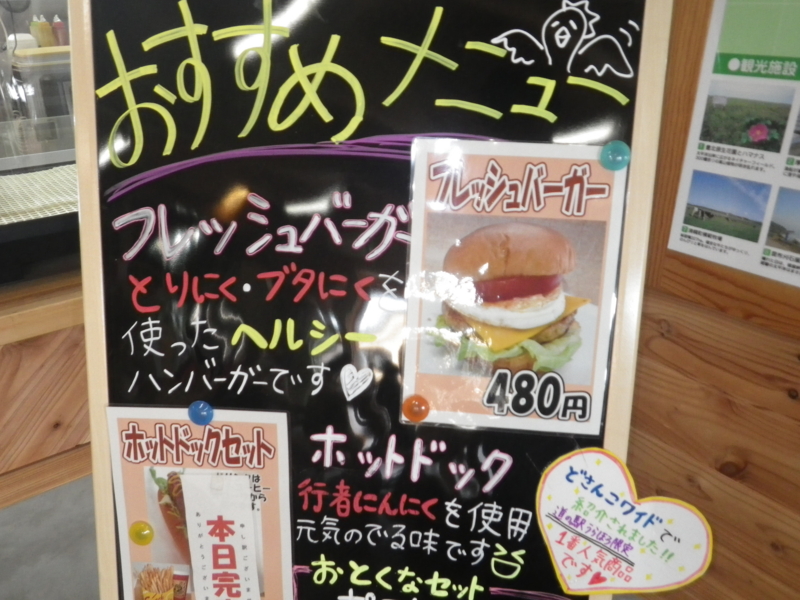 おすすめメニュー
フレッシュバーガー
とりにく・ブタにくを
使ったヘルシー
ハンバーガーです
フレッシュバーガー
480円
ホットドックセット
本日完
ホットドック
行者にんにくを使用
元気のでる味です
おとくなセット
どさんこワイドで
紹介されました!!
道の駅うらほろ限定
1番人気商品
です
●観光施設